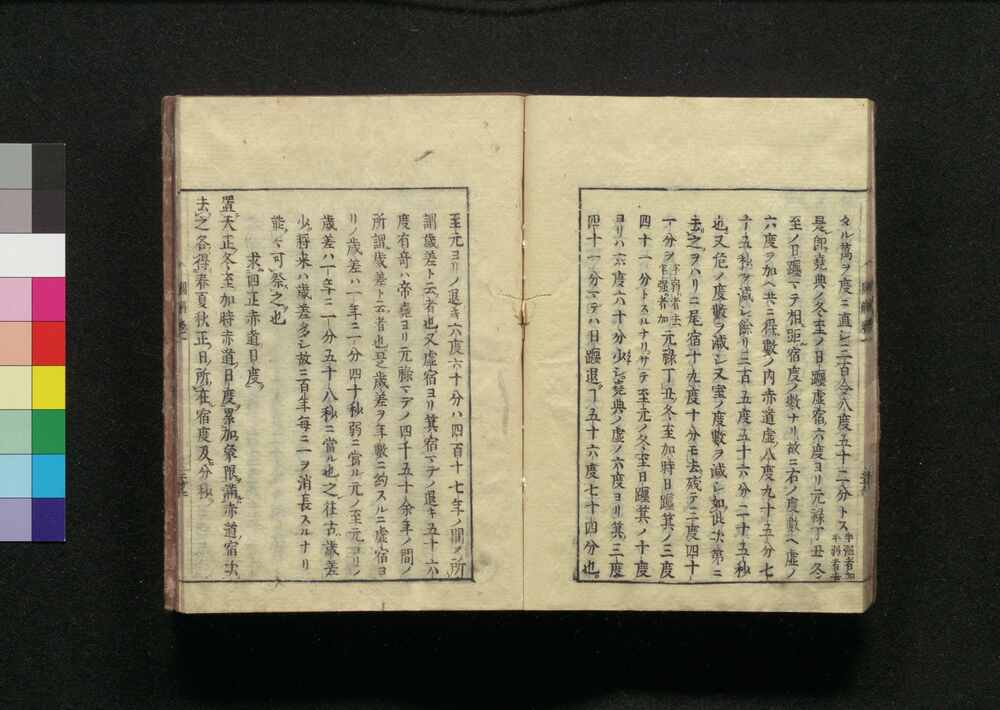 タル萬ヲ度ニ直シ三百令八度五十二分トス半強者加半弱者去
是即堯典ノ冬至ノ日躔虚宿六度ヨリ元禄丁丑冬
至ノ日躔マテ相距宿度ノ數ナリ故ニ右ノ度數ヘ虚ノ
六度ヲ加ヘ共ニ得數ノ内赤道虚八度九十五分七
十五秒ヲ減シ餘リ三百五度五十六分二十五秒
也又危ノ度數ヲ減シ又室ノ度數ヲ減シ如此次第ニ
去之ヲハリニ尾宿十九度十分モ去残テ三度四十
一分ヲ半弱者去半強者加元禄丁丑冬至加時日躔箕ノ三度
四十一分トスルナリサテ至元ノ冬至日躔箕ノ十度
ヨリハ六度六十分少シ堯典ノ虚ノ六度ヨリ箕三度
四十一分マテハ日躔退丁五十六度七十四分也
至元ヨリノ退キ六度六十分ハ四百十七年ノ間ノ所
謂歳差ト云者也又虚宿ヨリ箕宿マデノ退キ五十六
度有竒ハ帝堯ヨリ元禄マデノ四千五十余年ノ間ノ
所謂歳差ト云者也是歳差ヲ年數ニ約スルニ虚宿ヨ
リノ歳差ハ一年ニ一分四十秒弱ニ當ル元ノ至元ヨリノ
歳差ハ一年ニ一分五十八秒ニ當ル也之往古歳差
少將来ハ歳差多シ故ニ百年毎ニ一ヲ消長スルナリ
能々可祭之也
求四正赤道日度
置天正冬至加時赤道日度累加象限滿赤道宿次
去之各得春夏秋正日所在宿度及分秒